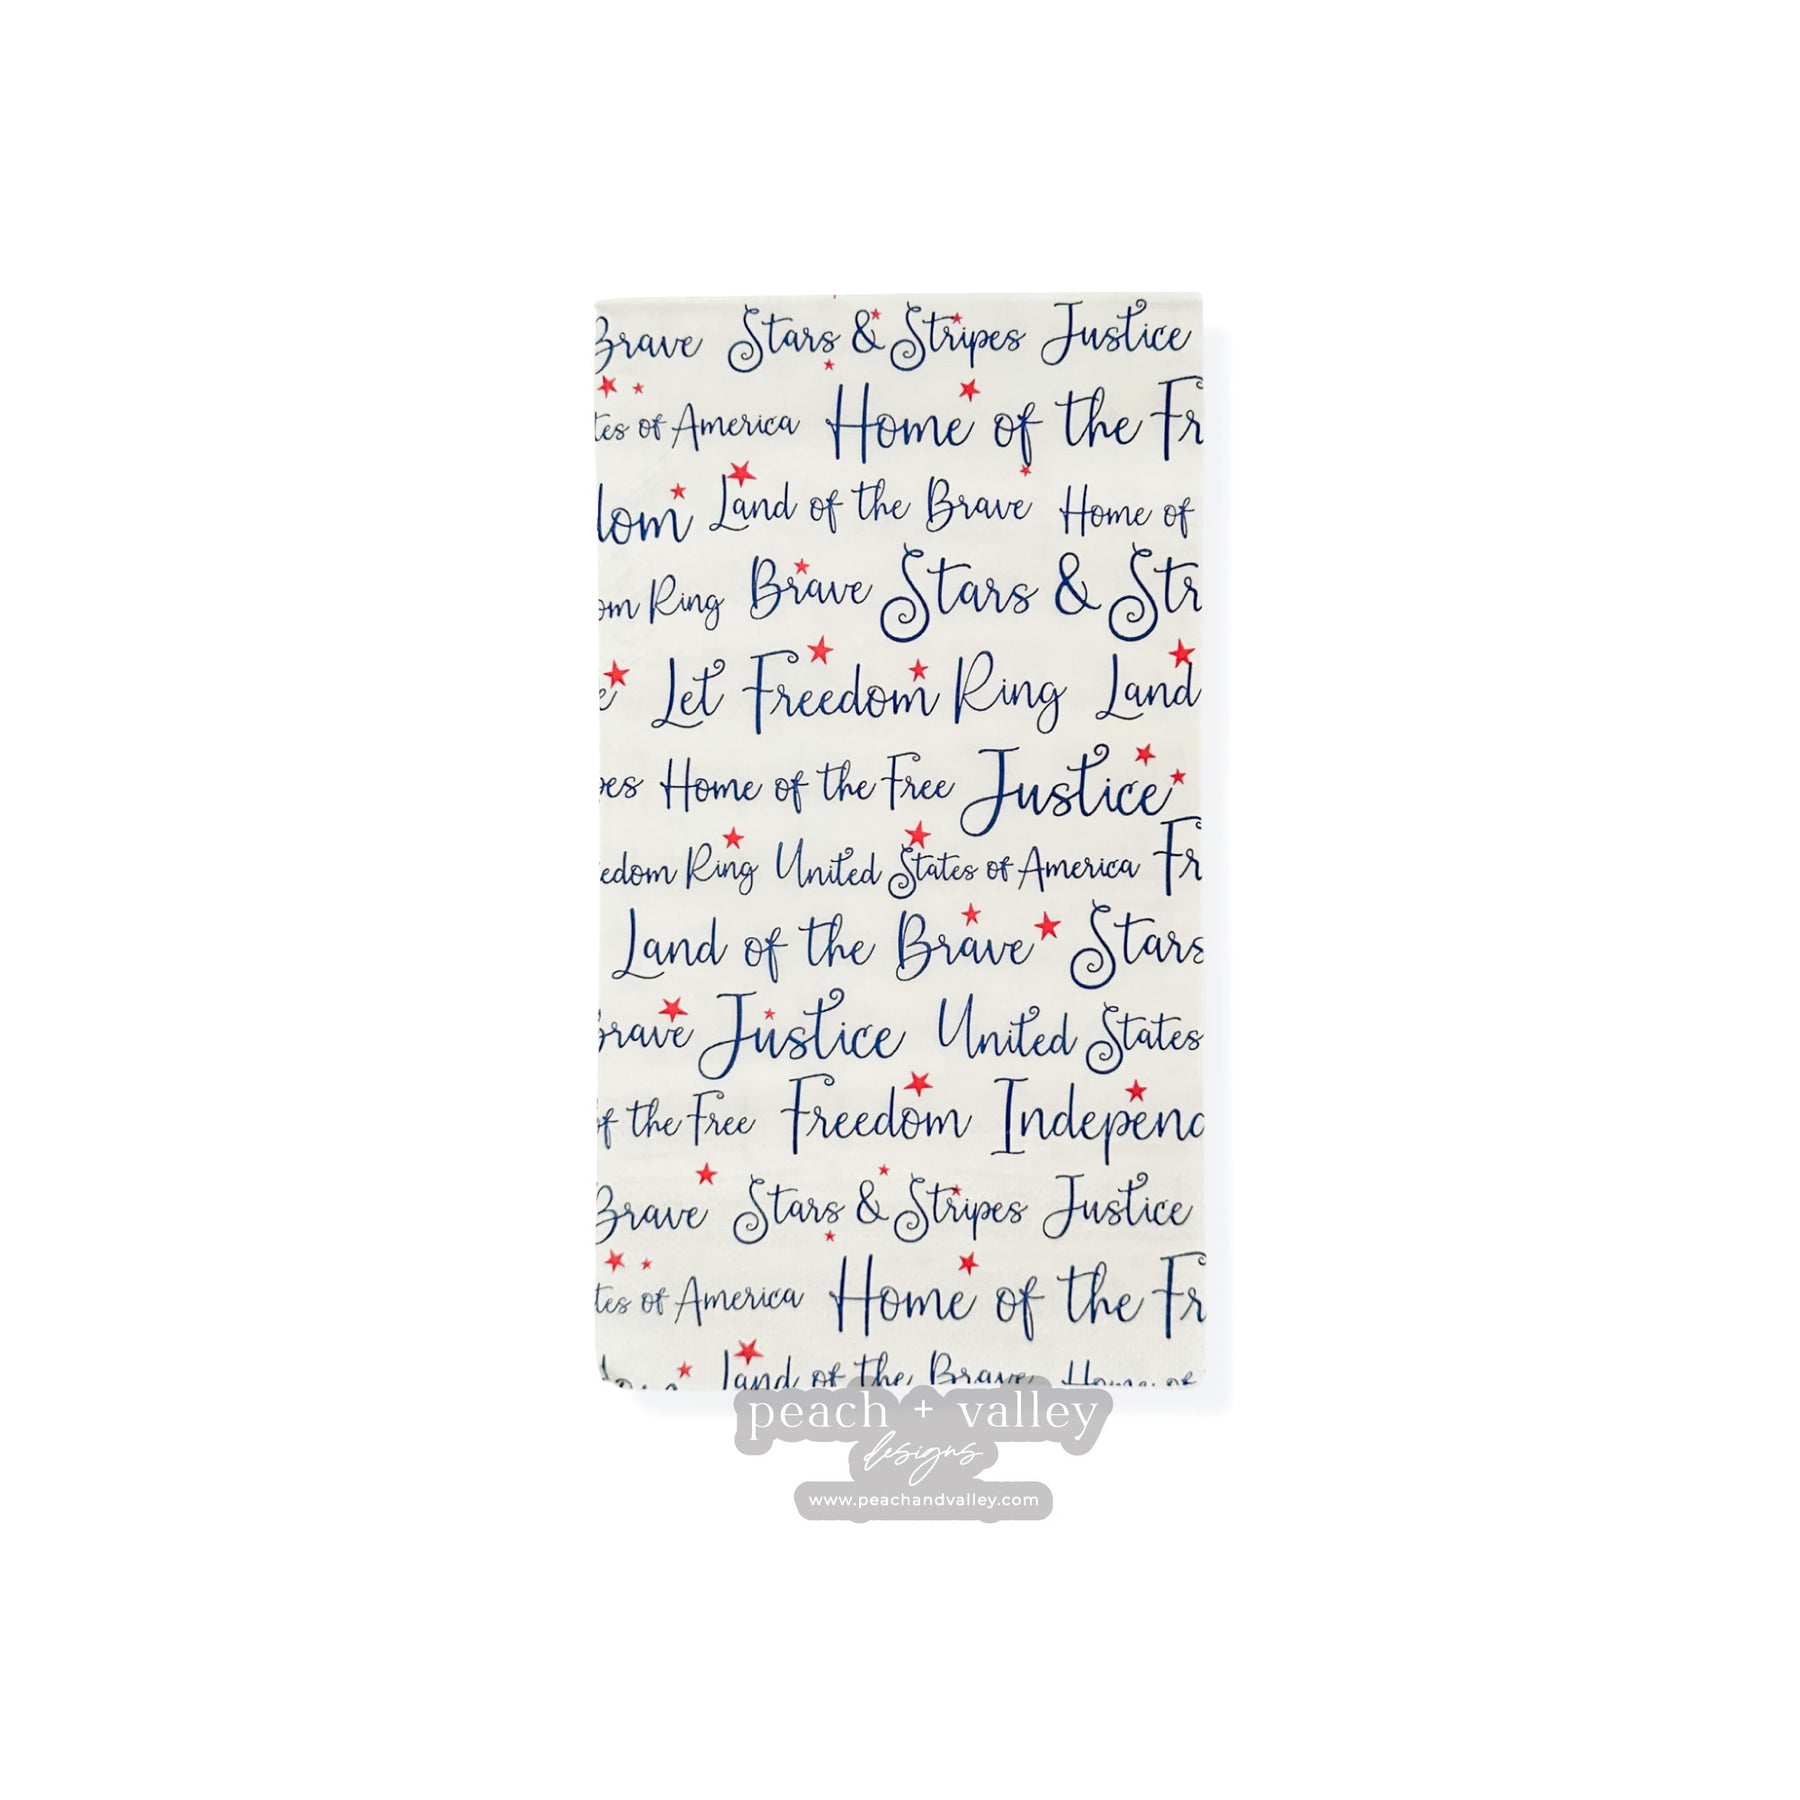 Brave Stars & Stripes Justice
tes of America Home of the Fr
dom Land of the Brave Home of
om Ring Brave Stars & Str
e Let Freedom Ring Land
pes Home of the Free Justice
edom Ring United States of America Fr
Land of the Brave Stars
Brave Justice United States
of the Free Freedom Independ
Brave Stars & Stripes Justice
tes of America Home of the Fr
Land of the Brave Home of
peach + valley
designs
www.peachandvalley.com